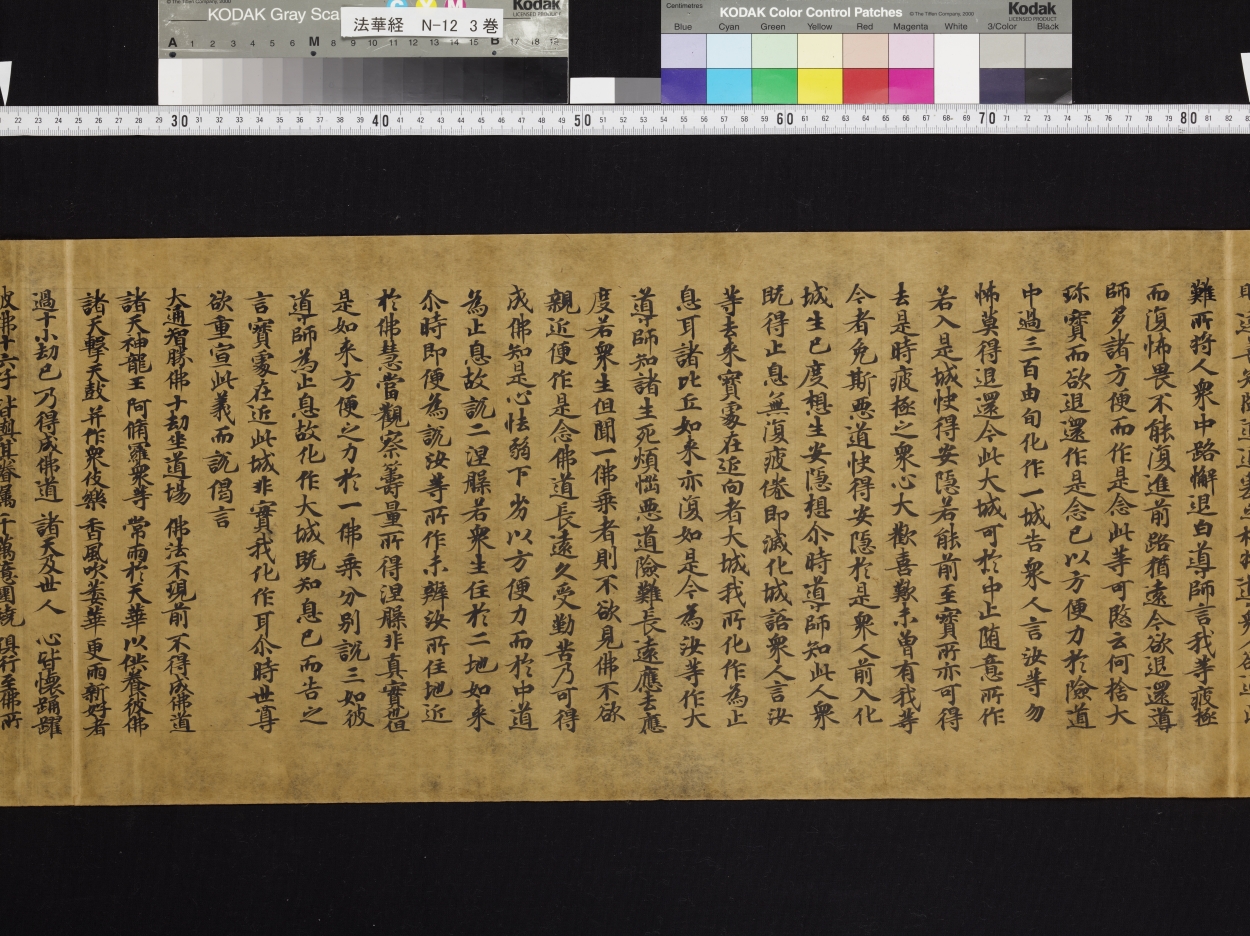 KODAK Gray Sca
© The Tiffen Company, 2000
Kodak
LICENSED PRODUCT
法華経 N-12 3巻
A 1 2 3 4 5 6 M 8 9 10 11 12 13 14 15 B 17 18 19
Centimetres
KODAK Color Control Patches
© The Tiffen Company, 2000
Kodak
LICENSED PRODUCT
Blue Cyan Green Yellow Red Magenta White 3/Color Black
22 23 24 25 26 27 28 29 30 31 32 33 34 35 36 37 38 39 40 41 42 43 44 45 46 47 48 49 50 51 52 53 54 55 56 57 58 59 60 61 62 63 64 65 66 67 68 69 70 71 72 73 74 75 76 77 78 79 80 81 82
難所將人衆中路懈退白導師言我等疲極
而復怖畏不能復進前路猶遠今欲退還導
師多諸方便而作是念此等可愍云何捨大
珎寶而欲退還作是念已以方便力於險道
中過三百由旬化作一城告衆人言汝等勿
怖莫得退還今此大城可於中止随意所作
若入是城快得安隱若能前至寶所亦可得
去是時疲極之衆心大歡喜歎未曽有我等
今者免斯悪道快得安隱於是衆人前入化
城生已度想生安隱想尒時導師知此人衆
既得止息無復疲倦即滅化城語衆人言汝
等去来寶䖏在近向者大城我所化作為止
息耳諸比丘如来亦復如是今為汝等作大
導師知諸生死煩惱悪道險難長遠應去應
度若衆生但聞一佛乘者則不欲見佛不欲
親近便作是念佛道長遠久受勤苦乃可得
成佛知是心怯弱下劣以方便力而於中道
為止息故說二涅槃若衆生住於二地如来
尒時即便為說汝等所作未辦汝所住地近
於佛慧當觀察籌量所得涅槃非真實也但
是如来方便之力於一佛乘分别說三如彼
導師為止息故化作大城既知息已而告之
言寶䖏在近此城非實我化作耳尒時世尊
欲重宣此義而說偈言
大通智勝佛 十劫坐道場 佛法不現前 不得成佛道
諸天神龍王 阿脩羅衆等 常雨於天華 以供養彼佛
諸天擊天鼓 并作衆伎樂 香風吹萎華 更雨新好者
過十小劫已 乃得成佛道 諸天及世人 心皆懐踊躍
彼佛十六子 皆與其眷屬 千萬億圍繞 俱行至佛所